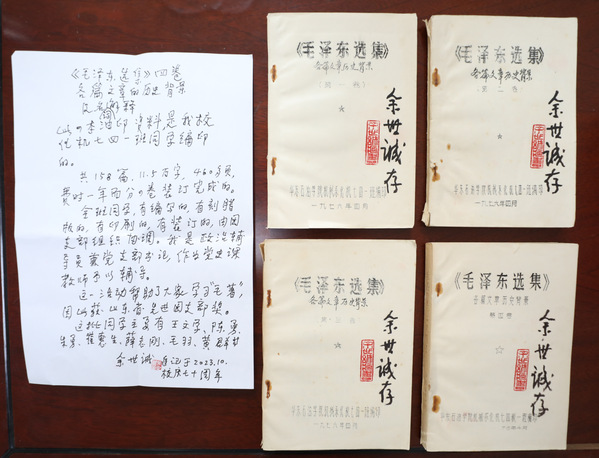 《毛泽东选集》四卷
各篇文章的历史背景
及有解释
此4本油印资料,是我校
优机七四一班同学编印
的。
共158篇、11.5万字,460多页,
费时一年两分4卷装订完成的。
全班同学,有编写的,有刻腊
版的,有印刷的,有装订的,由团
支部组织协调。我是政治辅
导员兼党支部书记,作为党史课
教师予以辅导。
这一活动帮助了大家学习“毛著”,
因此获山东省先进团支部奖。
这批同学主要有王文学、陈勇、
朱勇、崔蕙生、薛志刚、毛羽、黄
余世诚 自记于2023.10.
校庆七十周年
《毛泽东选集》
各篇文章历史背景
(第一卷)
☆
余世诚存
华东石油学院机械系优机七四一班编印
一九七六年四月
《毛泽东选集》
各篇文章历史背景
第二卷
☆
余世诚存
华东石油学院机械系优机七四一班编印
一九七六年四月
《毛泽东选集》
各篇文章历史背景
第三卷
☆
余世诚存
华东石油学院机械系优机七四一班编印
一九七六年四月
《毛泽东选集》
各篇文章历史背景
第四卷
☆
余世诚存
华东石油学院机械系优机七四一班编印